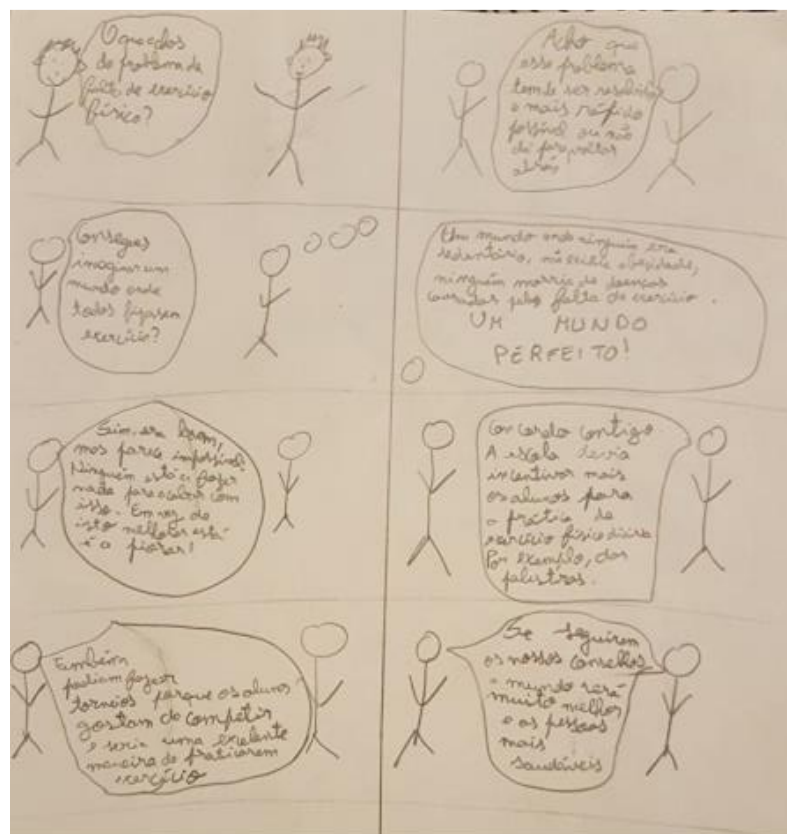 O que achas
do problema da
falta de exercício
físico?
Acho que
esse problema
tem de ser resolvido
o mais rápido
possível ou não
dá para voltar
atrás
Consegues
imaginar um
mundo onde
todos fizessem
exercício?
Um mundo onde ninguém era
sedentário, não existia obesidade,
ninguém morria de doenças
causadas pela falta de exercício.
UM MUNDO
PERFEITO!
Sim, era bom,
mas parece impossível!
Ninguém está a fazer
nada para acabar com
isso. Em vez de
isto melhorar está
é a piorar!
Concordo contigo
A escola devia
incentivar mais
os alunos para
a prática de
exercício físico diário
Por exemplo, dar
palestras.
Também
podiam fazer
torneios porque os alunos
gostam de competir
e seria uma exelente
maneira de praticarem
exercício
Se seguirem
os nossos conselhos
o mundo será
muito melhor
e as pessoas
mais
saudáveis